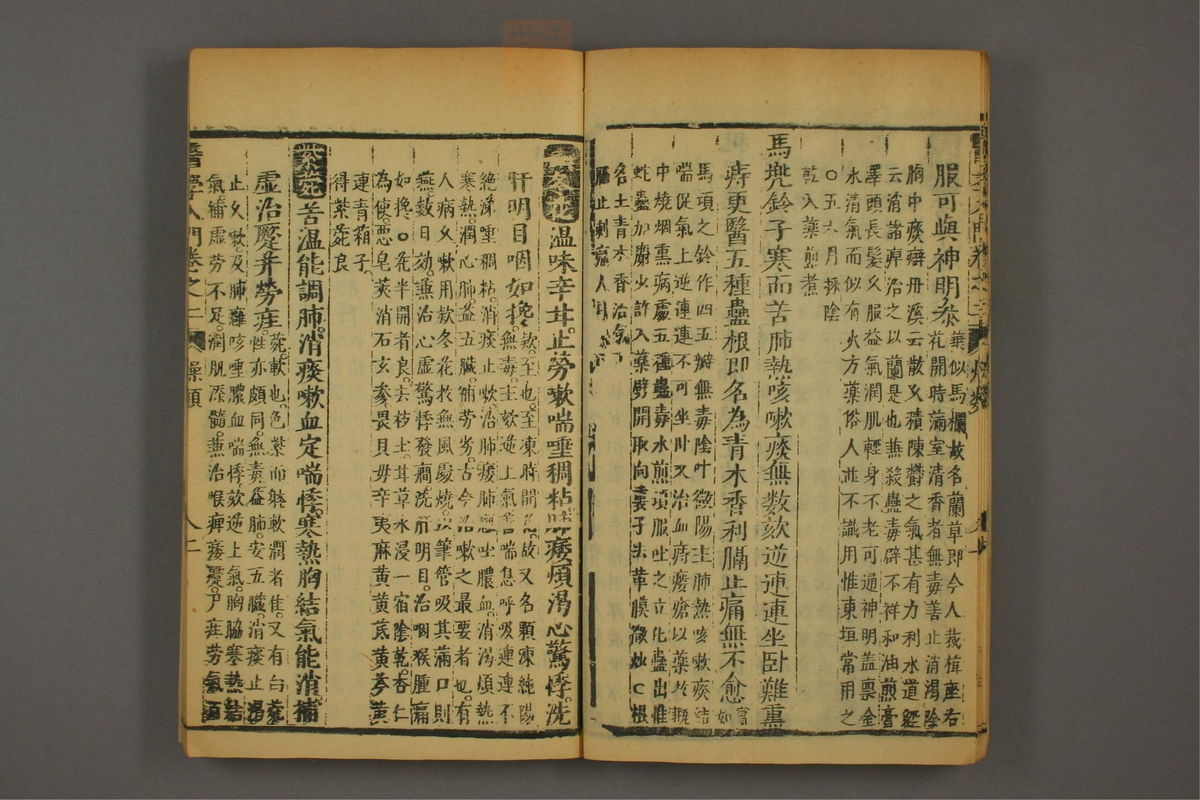 服可與神明參
葉似馬欄故名蘭草即今人栽植座右
花開時滿室清香者無毒善止消渴除
胸中痰癖丹溪云散久積陳欝之氣甚有力利水道經
云消諸痺治之以蘭是也兼殺蟲毒辟不祥和油煎膏
澤頭長髮久服益氣潤肌輕身不老可通神明盖禀金
水清氣而似有火方藥俗人並不識用惟東垣常用之
○五六月採陰
乾入藥煎煮
馬兜鈴子寒而苦肺熱咳嗽痰無数欬逆連連坐卧難熏
痔更醫五種蠱根即名為青木香利膈止痛無不愈
馬項之鈴作四五瓣無毒陰中微陽主肺熱咳嗽痰結
喘促氣上逆連連不可坐卧又治血痔瘻瘡以藥於瓶
中燒烟熏病處五種蠱毒水煎頓服吐之立化蠱出惟
蛇蠱加麝少許入藥劈開取向裏子去革膜微炒○根
名土青木香治氣
膈止刺
温味辛甘止勞嗽喘唾稠粘肺痿煩渴心驚悸洗
肝明目咽如攙
款至也至冬時開花故又名顆凍純陽
無毒主欬逆上氣善喘息呼吸連連不
絶涕唾稠粘消痰止嗽治肺痿肺癰吐膿血消渴煩熱
寒熱潤心肺益五臟補勞劣古今治嗽之最要者也有
人病久嗽用款冬花於無風處燒以筆管吸其滿口則
嚥数日効兼治心虛驚悸發癎洗肝明目治咽喉腫痛
如攙○花半開者良去枝土甘草水浸一宿陰乾杏仁
為使惡皂莢消石玄參畏貝母辛夷麻黄黄芪黄芩黄
連青箱子
得紫菀良
紫菀苦温能調肺消痰嗽血定喘悸寒熱胸結氣能消補
虛治躄并勞疰
菀軟也色紫而軆軟潤者佳又有白菀
性亦頗同無毒益肺安五臟消痰止渴
止久嗽及肺癰咳唾膿血喘悸欬逆上氣胸脇寒熱結
氣補虛勞不足潤肌添髓兼治喉痺痿躄尸疰勞氣百
醫學入門卷之二